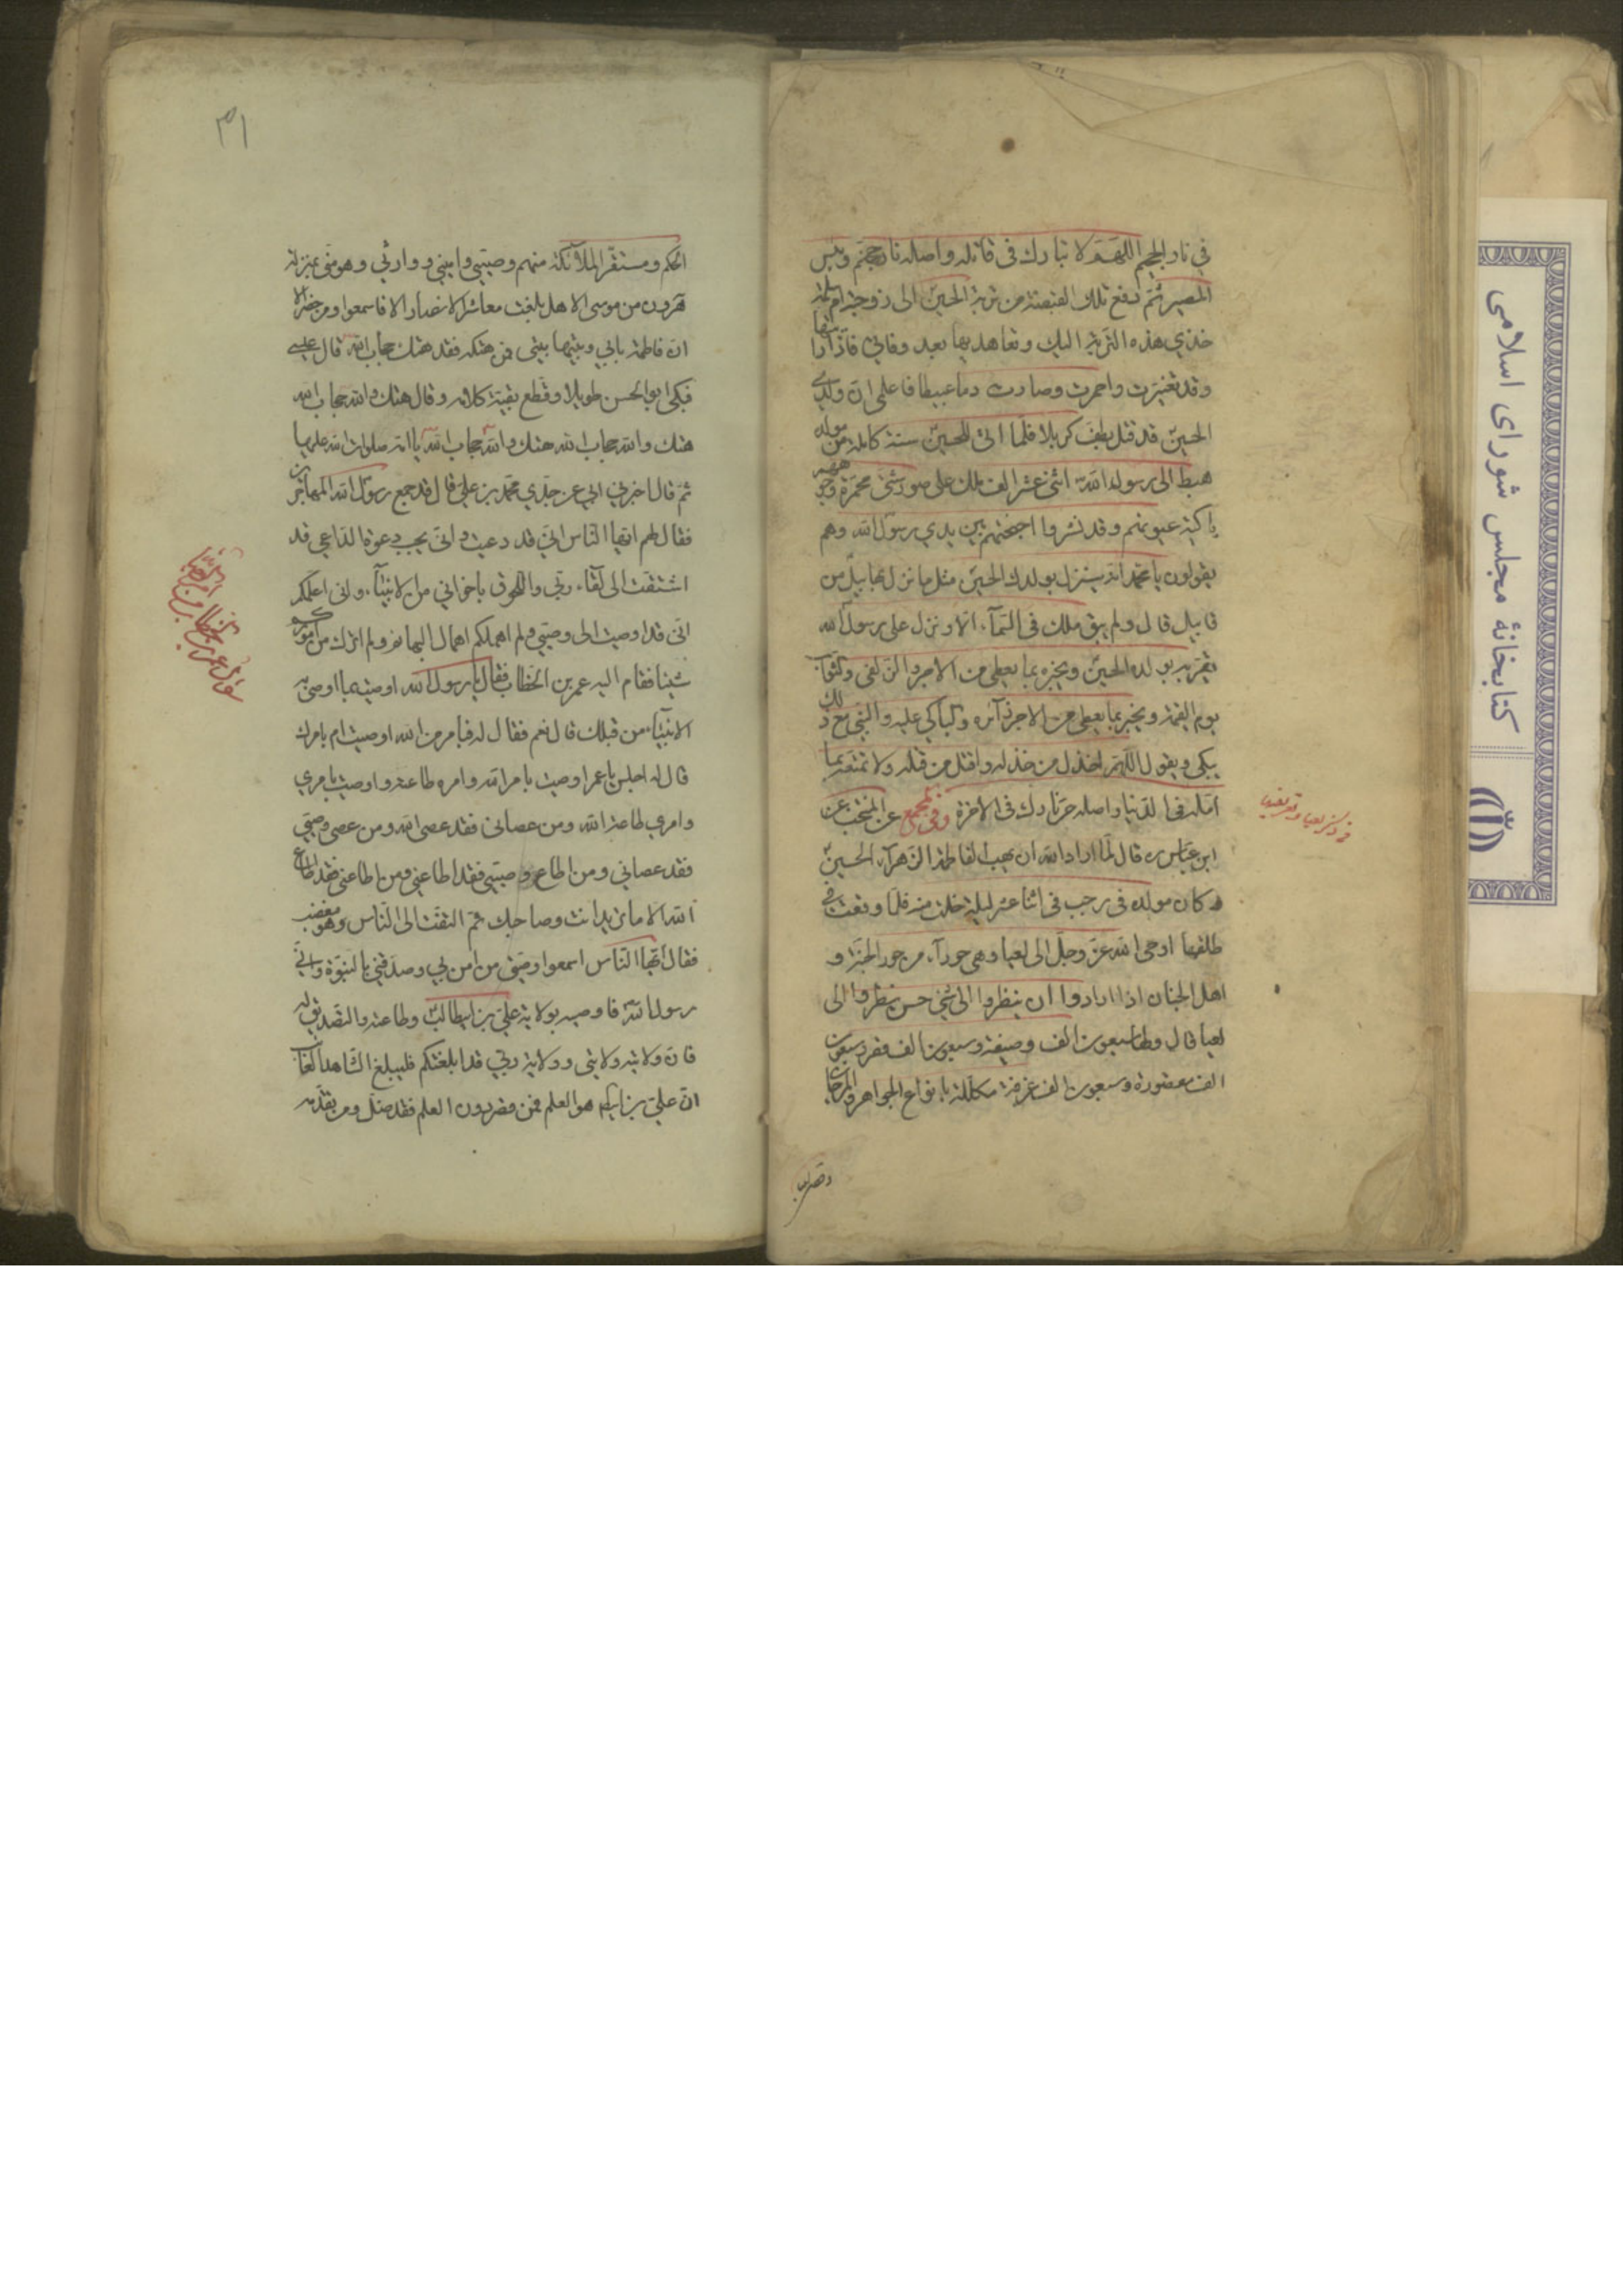 في نار الجحيم اللهم لا تبارك في قاتله واصله نار جهنم وبئس
المصير ثم دفع تلك القبضة من تربة الحسين الى زوجته ام سلمة
خذي هذه التربة اليك وتعاهديها بعد وفاتي فاذا رأيتها
وقد تغيرت واحمرت وصارت دما عبيطا فاعلمي ان ولدي
الحسين قد قتل بطف كربلا فلما اتى للحسين سنة كاملة من مولده
هبط الى رسول الله اثنى عشر الف ملك على صور شتى محمرة وجوههم
باكية عيونهم وقد نشروا اجنحتهم بين يدي رسول الله وهم
يقولون يا محمد انه سينزل بولدك الحسين مثل ما نزل بهابيل من
قابيل قال ولم يبق ملك في السماء الا ونزل على رسول الله
يعزيه بولده الحسين ويخبره بما يعطى من الاجر والزلفى والثواب
يوم القيمة ويخبره بما يعطى من الاجر زائره والباكي عليه والنبي مع ذلك
يبكي ويقول اللهم اخذل من خذله واقتل من قتله ولا تمتعه بما
امله في الدنيا واصله حر نارك في الاخرة وفي المجمع عن المنتخب عن
ابن عباس ره قال لما اراد الله ان يهب لفاطمة الزهراء الحسين
وكان مولده في رجب في اثنا عشر ليلة خلت منه فلما وقعت في
طلقها اوحى الله عز وجل الى لعيا وهي حوراء من حور الجنة و
اهل الجنان اذا ارادوا ان ينظروا الى شئ حسن نظروا الى
لعيا قال ولها سبعون الف وصيفة وسبعون الف قصر وسبعون
الف مقصورة وسبعون الف غرفة مكللة بانواع الجواهر والمرجان
وقصر لعيا
في ذكر لعيا وتعريفها
٣١
الحكم ومستقر الملائكة منهم وصيتي واميني ووارثي وهو مني بمنزلة
هرون من موسى الا هل بلغت معاشر الانصار الا فاسمعوا ومن حضر الا
ان فاطمة بابي وبيتها بيتي فمن هتكه فقد هتك حجاب الله قال عيسى
فبكى ابو الحسن طويلا وقطع بقية كلامه وقال هتك والله حجاب الله
هتك والله حجاب الله هتك والله حجاب الله يا امه صلوات الله عليها
ثم قال اخبرني ابي عن جدي محمد بن علي قال قد جمع رسول الله المهاجرين
فقال لهم ايها الناس اني قد دعيت واني مجيب دعوة الداعي قد
اشتقت الى لقاء ربي واللحوق باخواني من الانبياء واني اعلمكم
اني قد اوصيت الى وصيي ولم اهملكم اهمال البهائم ولم اترك من اموركم
شيئا فقام اليه عمر بن الخطاب فقال يا رسول الله اوصيت بما اوصى به
الانبياء من قبلك قال نعم فقال له فبامر من الله اوصيت ام بامرك
قال له اجلس يا عمر اوصيت بامر الله وامره طاعته واوصيت بامري
وامري طاعة الله ومن عصاني فقد عصى الله ومن عصى وصيي
فقد عصاني ومن اطاع وصيتي فقد اطاعني ومن اطاعني فقد اطاع
الله الا ما تريد انت وصاحبك ثم التفت الى الناس وهو مغضب
فقال ايها الناس اسمعوا وصيتي من امن بي وصدقني بالنبوة واني
رسول الله فاوصيه بولاية علي بن ابيطالب وطاعته والتصديق له
فان ولايته ولايتي وولاية ربي قد ابلغتكم فليبلغ الشاهد الغائب
ان علي بن ابيطالب هو العلم فمن قصر دون العلم فقد ضل ومن تقدمه
كتابخانهٔ مجلس شورای اسلامی